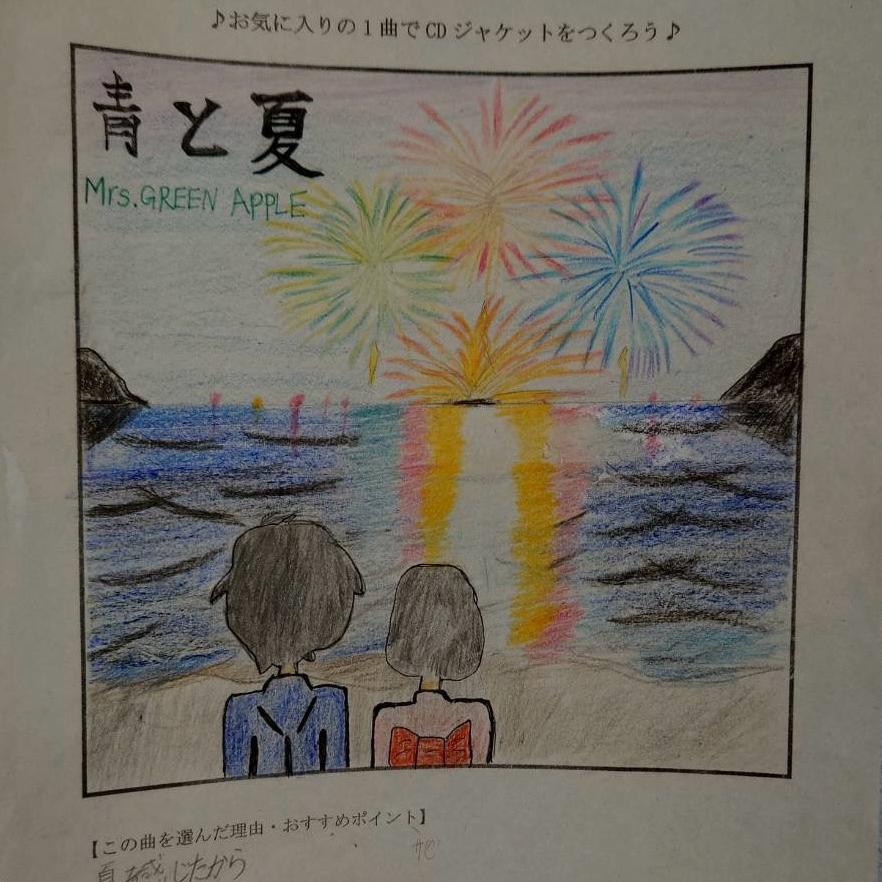 ♪お気に入りの1曲でCDジャケットをつくろう♪
青と夏
Mrs.GREEN APPLE
【この曲を選んだ理由・おすすめポイント】
感じたから